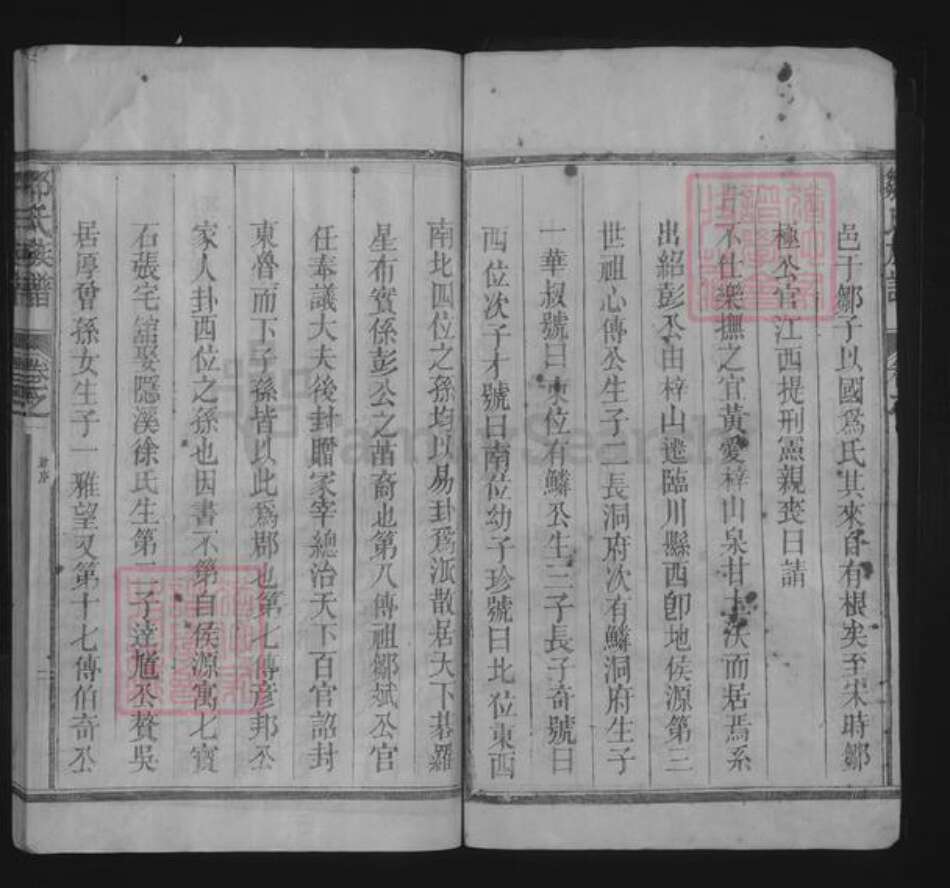 邑于鄒子以國爲氏其來自有根矣至宋時鄒
極公官江西提刑憲親喪日請
不仕樂撫之宜黃愛梓山泉甘土沃而居焉系
出紹彭公由梓山遷臨川縣西卽地侯源第三
世祖心傳公生子二長洞府次有鱗洞府生子
一華叔號曰東位有鱗公生三子長子奇號曰
西位次子才號曰南位幼子珍號曰北位東西
南北四位之孫均以易卦爲派散居天下碁羅
星布實係彭公之苗裔也第八傳祖鄒斌公官
任奉議大夫後封贈冢宰總治天下百官詔封
東魯而下子孫皆以此爲郡也第七傳彥邦公
家人卦西位之孫也因書不第自侯源寓七寶
石張宅舘娶隱溪徐氏生第二子達尶公贅吳
居厚曾孫女生子一雅望又第十七傳伯奇公
鄒氏族譜
卷之